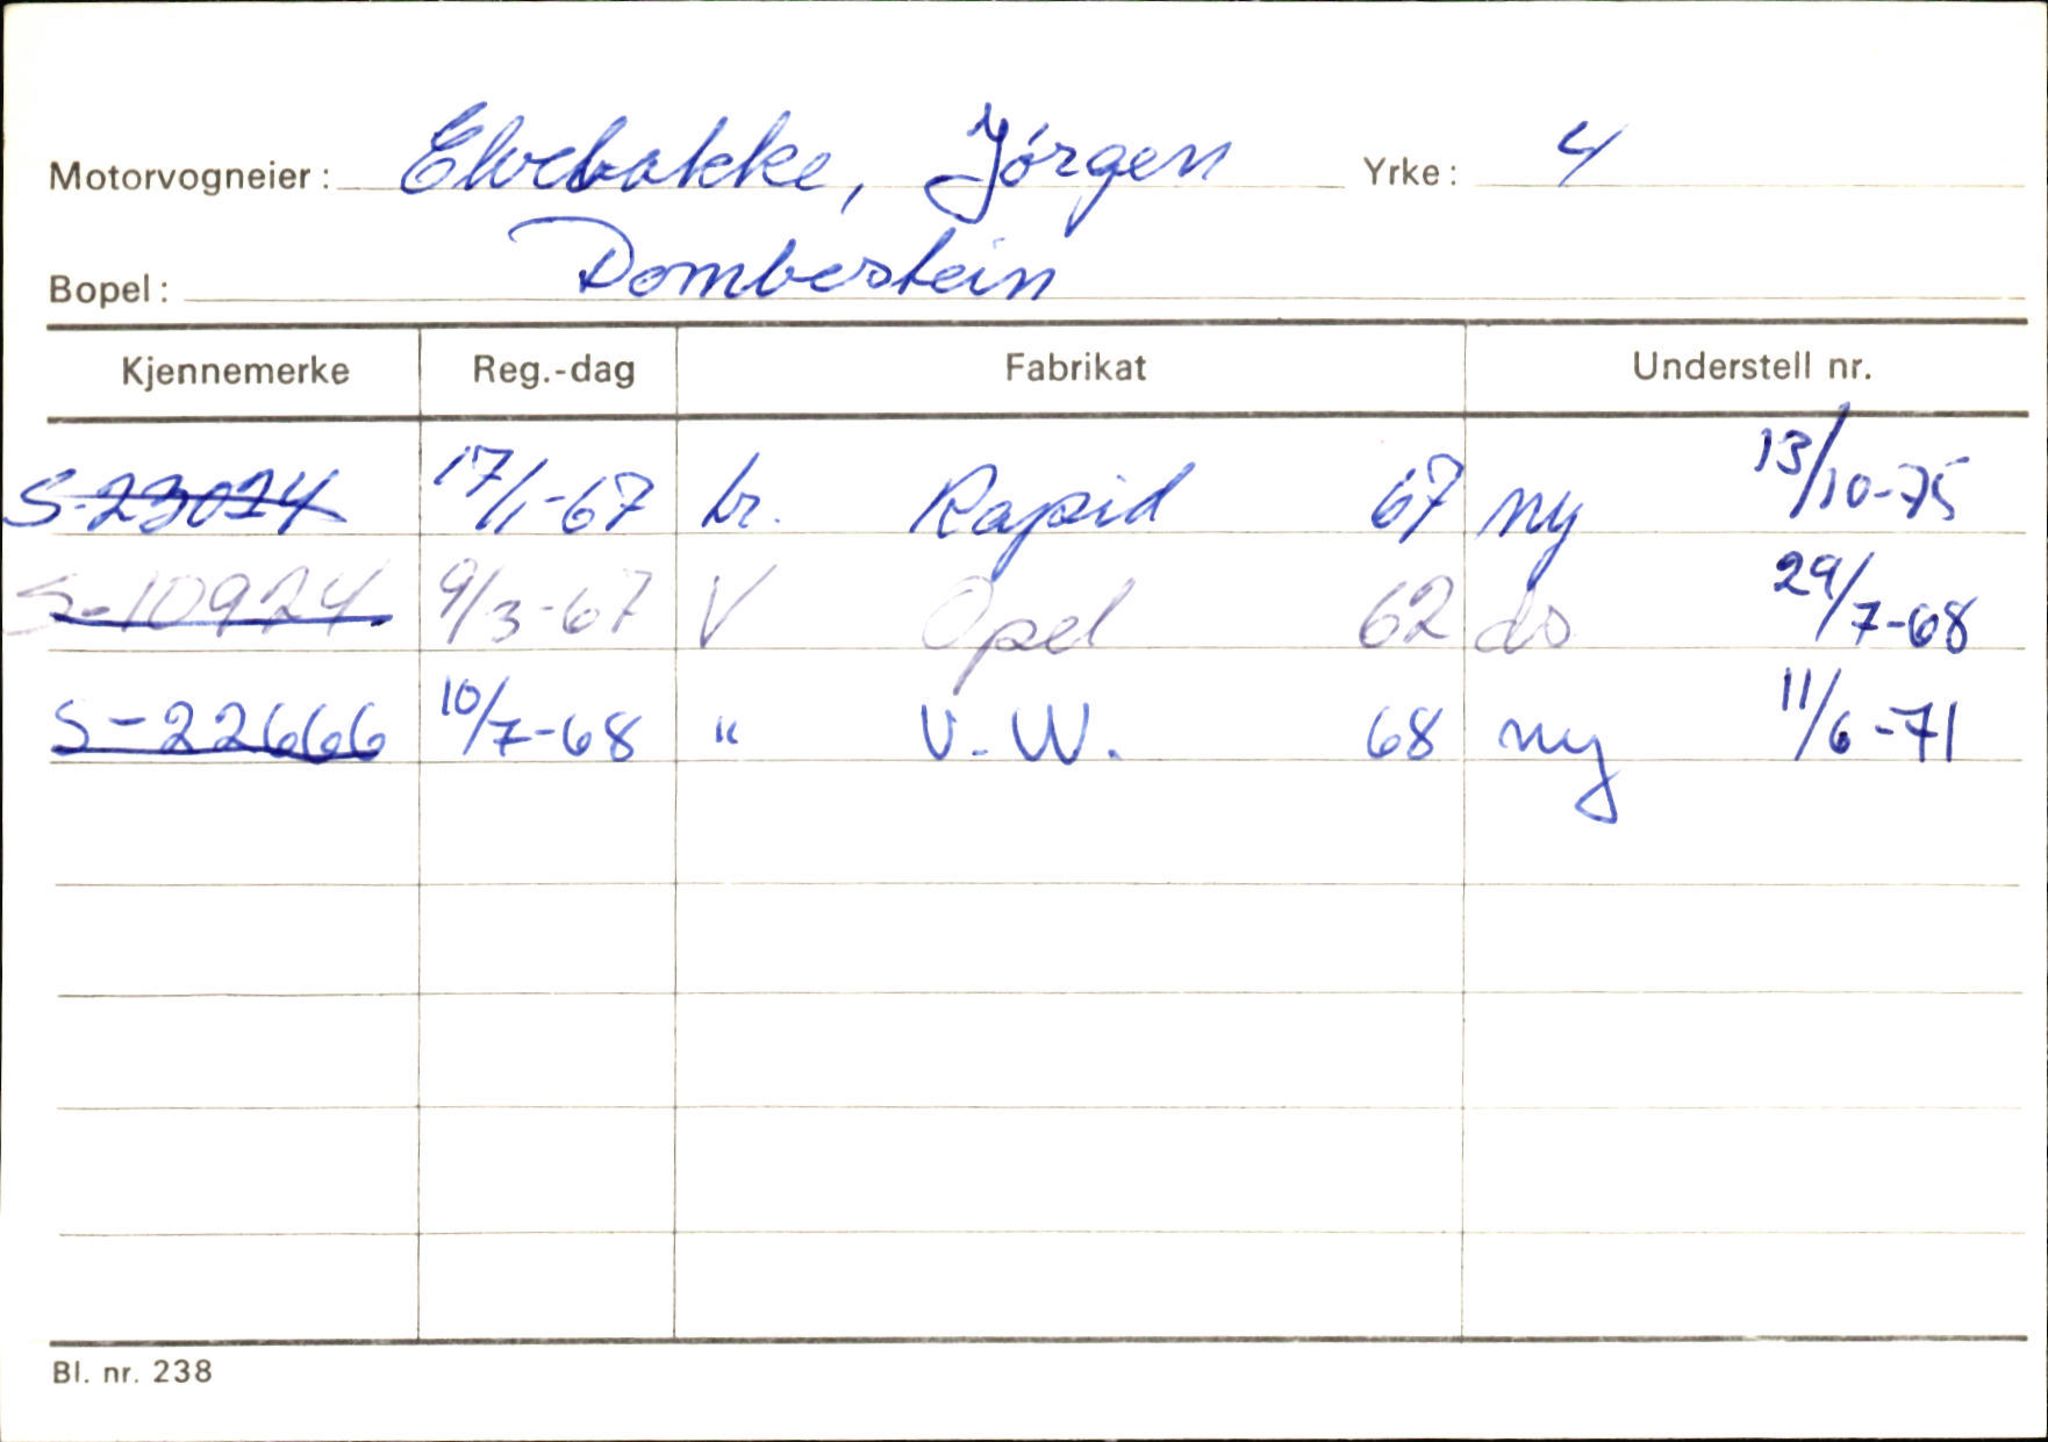 Motorvogneier: Elvebakke, Jørgen Yrke: 4
Bopel: Dombestein
Kjennemerke Reg.-dag Fabrikat Understell nr.
S-23024 17/1-67 tr. Rapid 67 ny 13/10-75
S-10924 9/3-67 V Opel 62 do 29/7-68
S-22666 10/7-68 " V.W. 68 ny 11/6-71
Bl. nr. 238